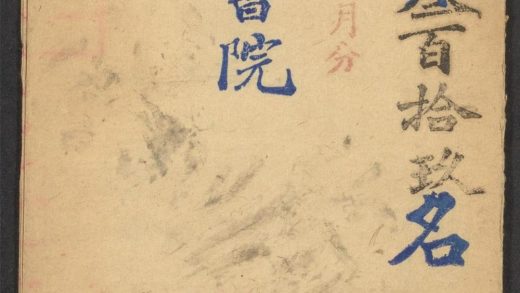 百拾玖名
月分
書院